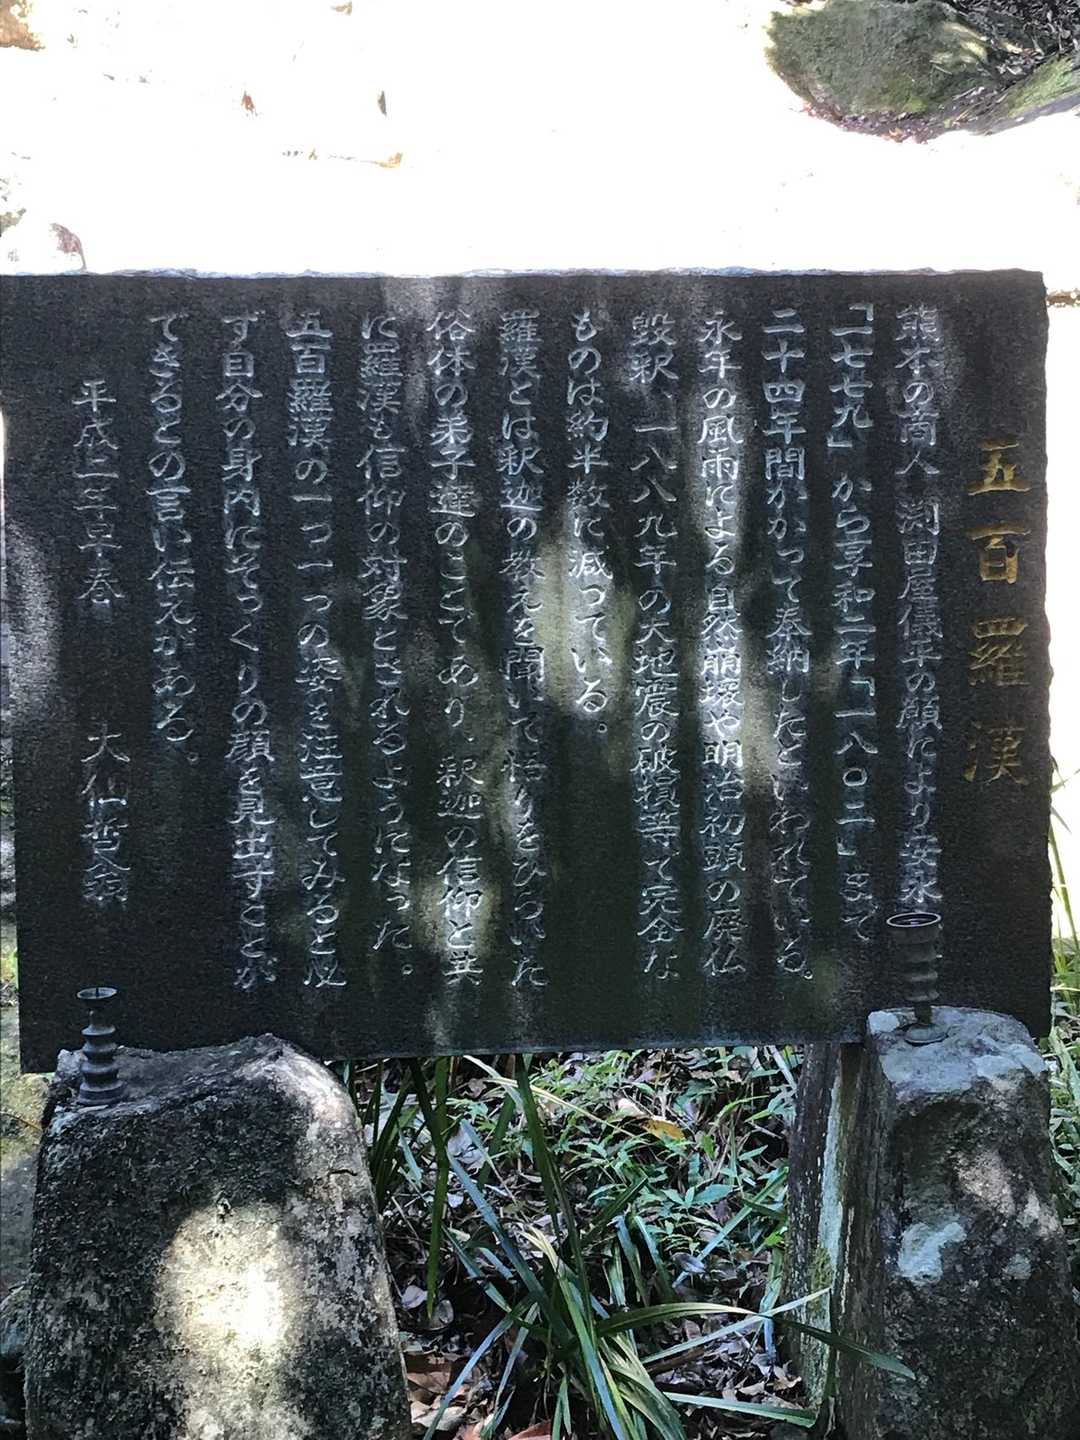 五百羅漢
熊本の商人 渕田屋儀平の願により安永
「一七七九」から享和二年「一八〇二」まで
二十四年間かかって奉納したといわれている。
永年の風雨による自然崩壊や明治初頭の廃仏
毀釈、一八八九年の大地震の破損等で完全な
ものは約半数に減っている。
羅漢とは釈迦の教えを聞いて悟りをひらいた
俗体の弟子達のことであり、釈迦の信仰と共
に羅漢も信仰の対象とされるようになった。
五百羅漢の一つ一つの姿を注意してみると必
ず自分の身内にそっくりの顔を見出すことが
できるとの言い伝えがある。
平成二年早春 大仙哲翁